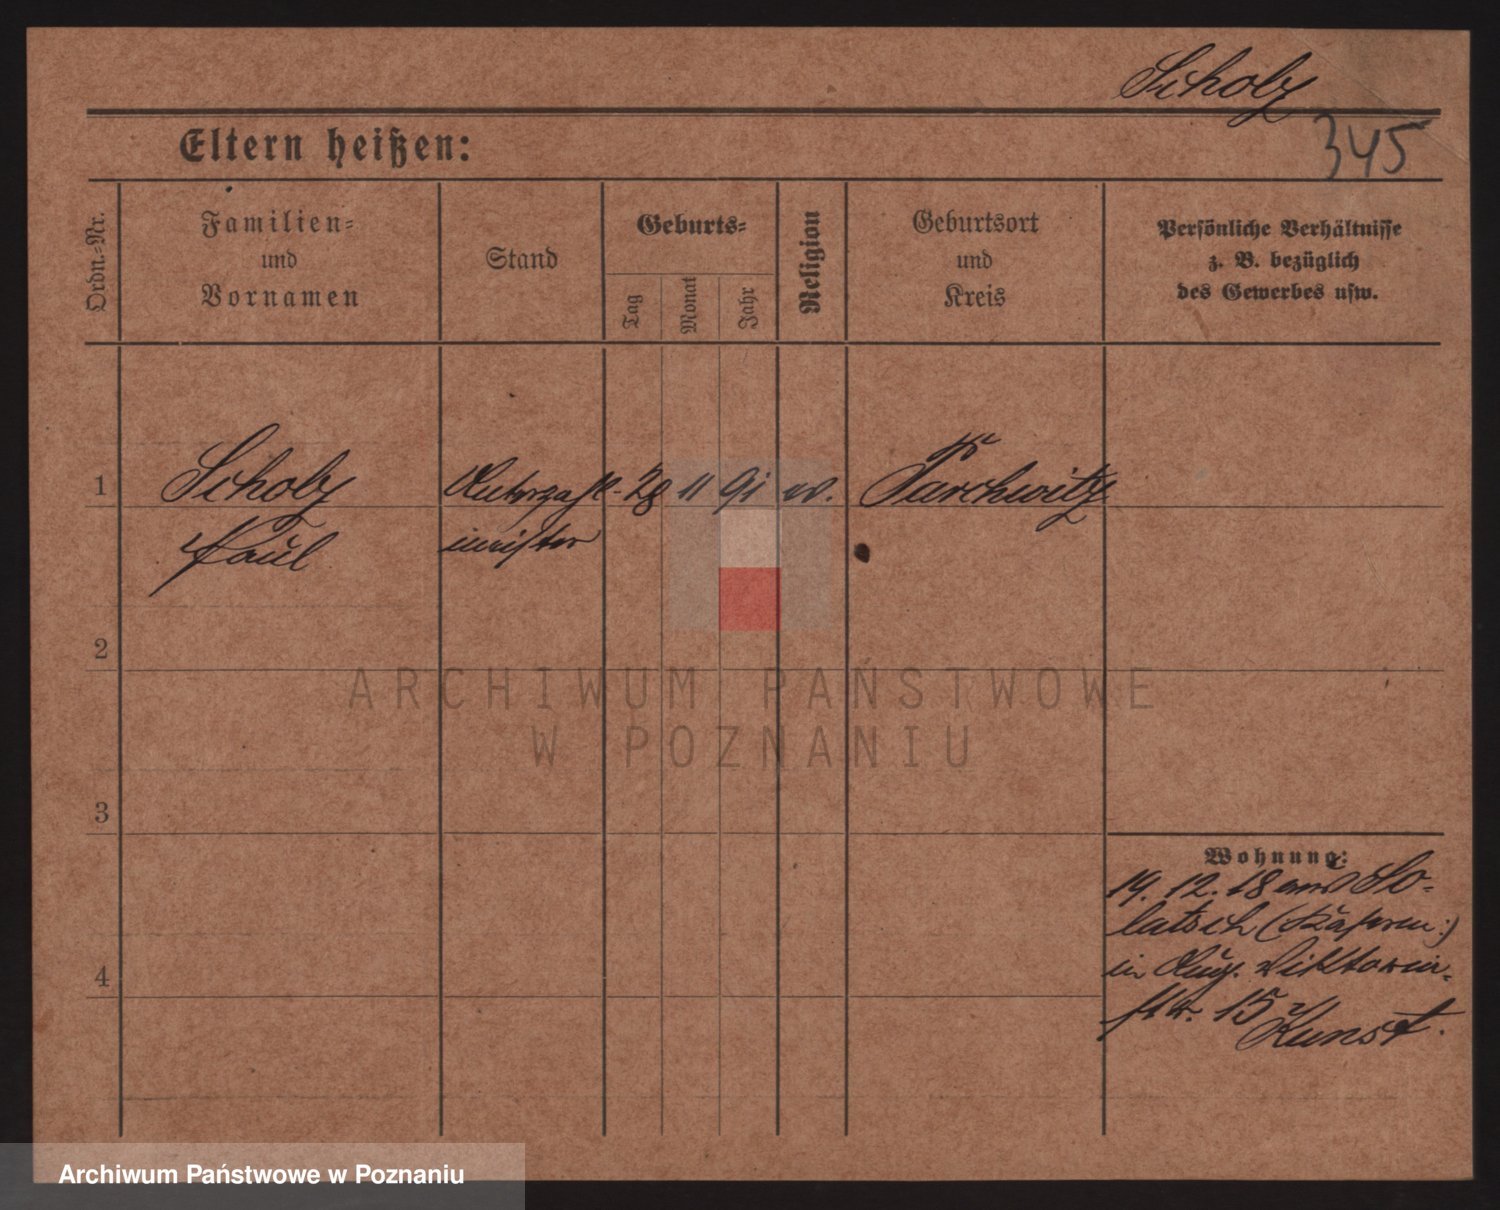 Scholz
345
Eltern heißen:
Ordn.-Nr.
Familien- und Vornamen
Stand
Geburts-
Tag
Monat
Jahr
Religion
Geburtsort und Kreis
Persönliche Verhältnisse
z. B. bezüglich
des Gewerbes usw.
1
Scholz
28 11 91
Parchwitz
Paul
meister
2
ARCHIWUM PAŃSTWOWE
W POZNANIU
3
Wohnung:
19. 12. 18 aus So-
latsch
in Aug. Viktoria-
str. 15 Kunst.
4
Archiwum Państwowe w Poznaniu